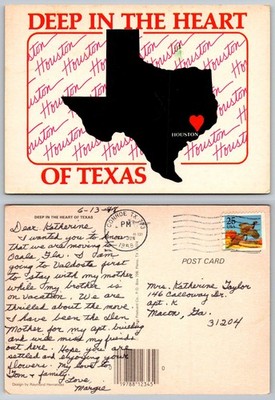 DEEP IN THE HEART
Houston Houston Houston
HOUSTON
OF TEXAS
6-13-88
DEEP IN THE HEART OF TEXAS
Dear Katherine,
I want you to know
that we are moving to
Ocala, Fla. I am
going to Valdosta first
to stay with my mother
while my brother is
on vacation. We are
thrilled about the move.
I have been the Den
Mother for my apt. building
and will miss my friends
out here. Hope you are
settled and enjoying your
flowers. My love to
& family.
Love,
Margie
CONROE, TX 773
PM
1988
25
USA
POST CARD
Mrs. Katherine Taylor
146 Calloway Dr.
apt. K
Macon, Ga.
31204
Design by Raymond Hernandez
9788"12345"
0